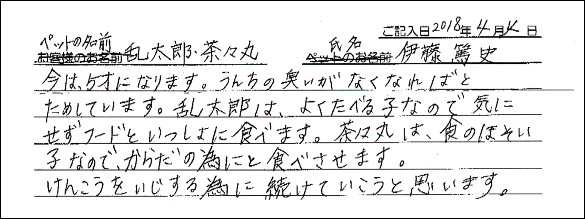 ご記入日 2018年 4月 4日
ペットの名前 氏名
お客様のお名前 乱太郎・茶々丸 ペットのお名前 伊藤 篤史
今は、5才になります。うんちの臭いがなくなればと
ためしています。乱太郎は、よくたべる子なので気に
せずフードといっしょに食べます。茶々丸は、食のほそい
子なので、からだの為にと食べさせます。
けんこうをいじする為に続けていこうと思います。